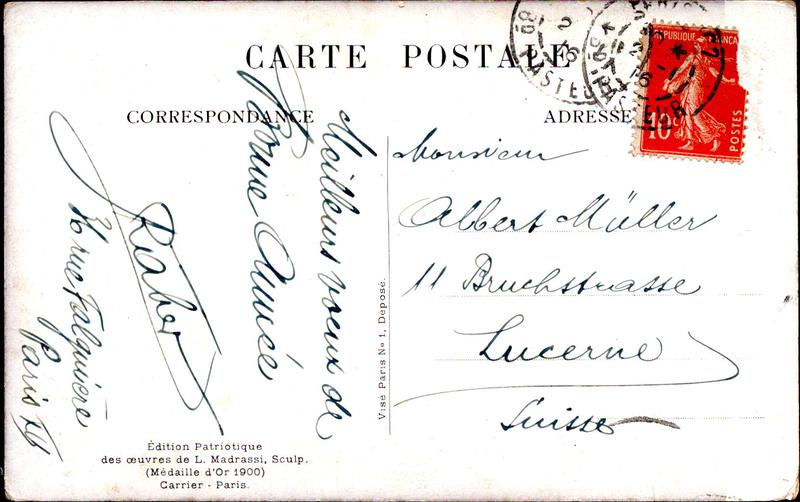 CARTE POSTALE
CORRESPONDANCE
ADRESSE
RÉPUBLIQUE FRANÇAISE
10c
POSTES
PASTEUR
Meilleurs voeux de
Bonne Année
Raber
rue Falguière
Paris
Monsieur
Albert Müller
11 Bruchstrasse
Lucerne
Suisse
Visé Paris No 1, Déposé.
Édition Patriotique
des œuvres de L. Madrassi, Sculp.
(Médaille d'Or 1900)
Carrier - Paris.